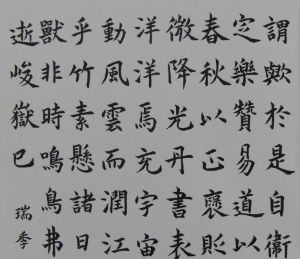 謂歟於是自衛
定樂贊易道以
春秋以正褒貶
微降光丹書表
洋洋焉充宇宙
動風雲而潤江
乎竹素懸諸日
獸非時鳴鳥弗
逝峻嶽已
瑞季